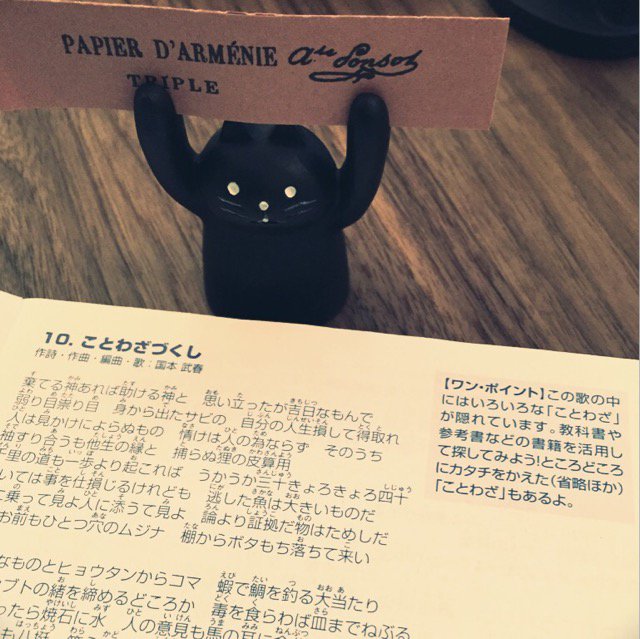 PAPIER D'ARMÉNIE
TRIPLE
10. ことわざづくし
作詩・作曲・編曲・歌：国本 武春
棄てる神あれば助ける神と　思い立ったが吉日なもんで
弱り目祟り目　身から出たサビの　自分の人生損して得取れ
人は見かけによらぬもの　情けは人の為ならず　そのうち
袖すり合うも他生の縁と　捕らぬ狸の皮算用
里の道も一歩より起これば　うかうか三十きょろきょろ四十
いては事を仕損じるけれども　逃した魚は大きいものだ
乗って見よ人に添うて見よ　論より証拠だ物はためしだ
お前もひとつ穴のムジナ　棚からボタもち落ちて来い
なものとヒョウタンからコマ　蝦で鯛を釣る大当たり
ブトの緒を締めるどころか　毒を食らわば皿までねぶる
ったら焼石に水　人の意見も馬の耳に
【ワン・ポイント】この歌の中
にはいろいろな「ことわざ」
が隠れています。教科書や
参考書などの書籍を活用し
て探してみよう！ところどころ
にカタチをかえた（省略ほか）
「ことわざ」もあるよ。